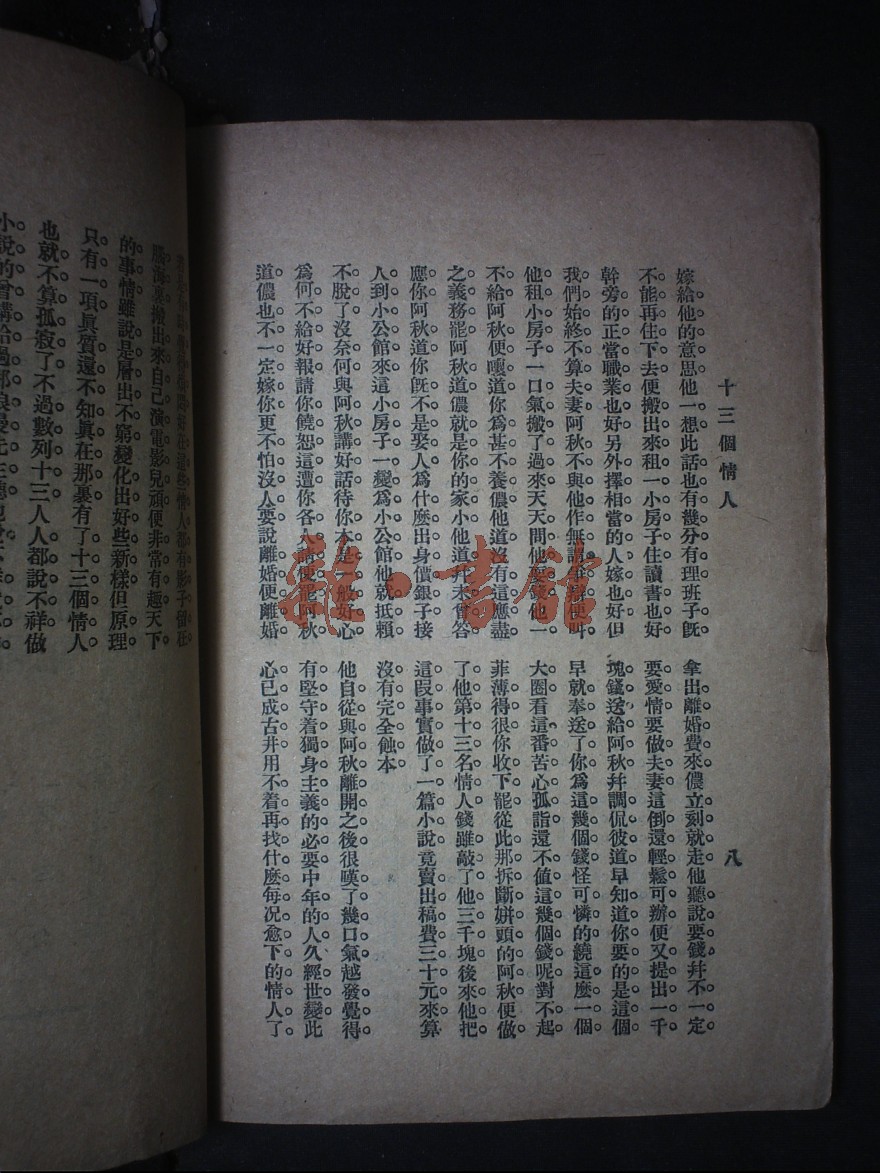 十三個情人
八
嫁給他的意思他一想此話也有幾分有理班子旣
不能再住下去便搬出來租一小房子住讀書也好
幹旁的正當職業也好另外擇相當的人嫁也好但
我們始終不算夫妻阿秋不與他作無謂爭辯便叫
他租小房子一口氣搬了過來天天問他要錢他一
不給阿秋便嚷道你爲甚不養儂他道沒有這應盡
之義務罷阿秋道儂就是你的家小他道幷未曾答
應你阿秋道你旣不是娶人爲什麼出身價銀子接
人到小公館來這小房子一變爲小公館他就抵賴
不脫了沒奈何與阿秋講好話待你本是一般好心
爲何不給好報請你饒恕這遭你各人請便罷阿秋
道儂也不一定嫁你更不怕沒人要說離婚便離婚
拿出離婚費來儂立刻就走他聽說要錢幷不一定
要愛情要做夫妻這倒還輕鬆可辦便又提出一千
塊錢送給阿秋幷調侃彼道早知道你要的是這個
早就奉送了你爲這幾個錢怪可憐的繞這麼一個
大圈看這番苦心孤詣還不值這幾個錢呢對不起
菲薄得很你收下罷從此那拆斷姘頭的阿秋便做
了他第十三名情人錢雖敲了他三千塊後來他把
這段事實做了一篇小說竟賣出稿費三十元來算
沒有完全蝕本
他自從與阿秋離開之後很嘆了幾口氣越發覺得
有堅守着獨身主義的必要中年的人久經世變此
心已成古井用不着再找什麼每况愈下的情人了
搬出來自己演電影兒頑便非常有趣天下
的事情雖說是層出不窮變化出好些新樣但原理
只有一項眞質還不知眞在那裏有了十三個情人
也就不算孤寂了不過數列十三人人都說不祥做
龍·書館